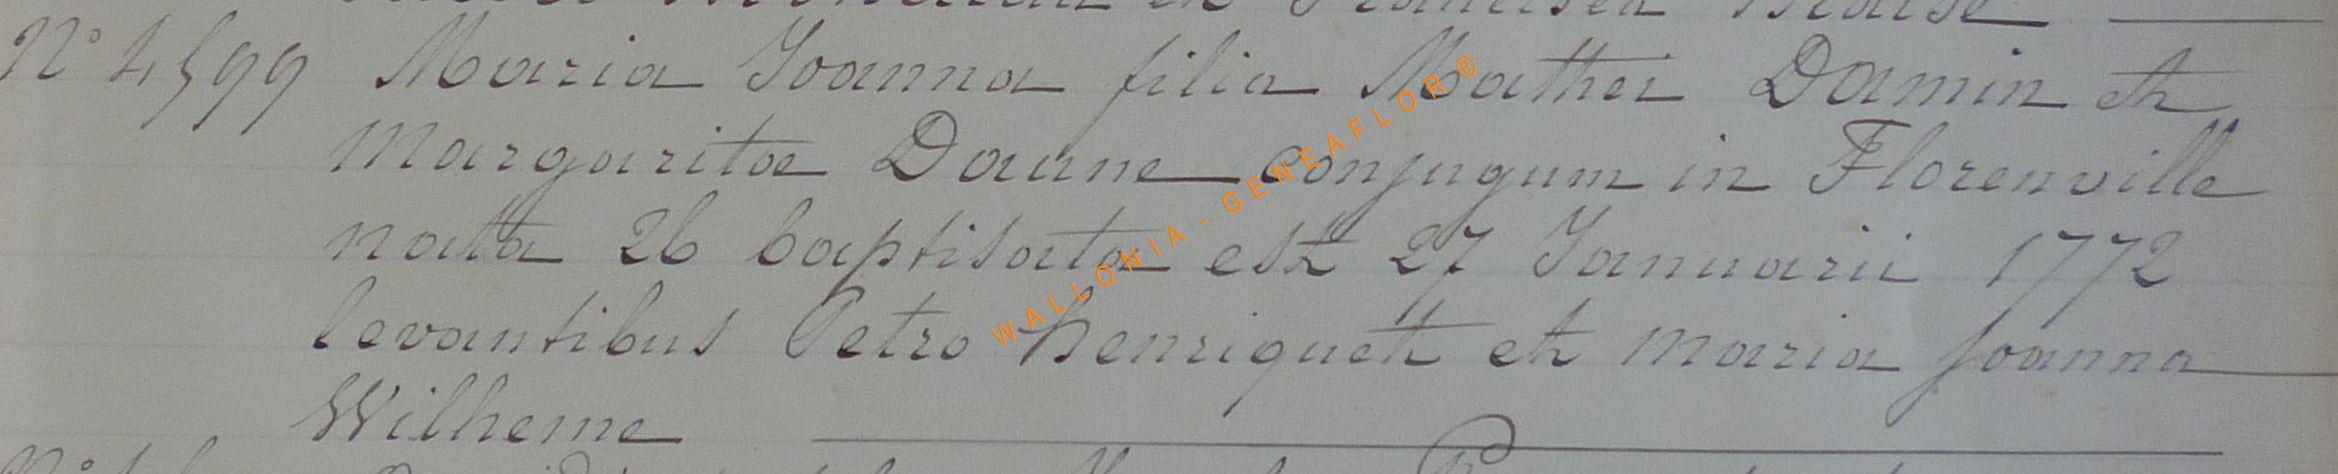 N° 4,599 Maria Joanna filia Mathei Damin et
Margaritæ Daune conjugum in Florenville
nata 26 baptisata est 27 Januarii 1772
levantibus Petro henriquet et Maria Joanna
Wilheme
WALLONIA - GENEAFLOR ®